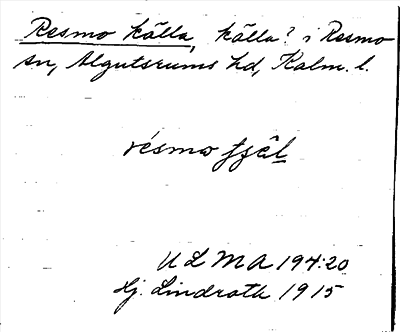 Resmo källa, källa? i Resmo
sn, Algutsrums hd, Kalm. l.
résmo fjäl
ULMA 194:20
Hj. Lindroth 1915